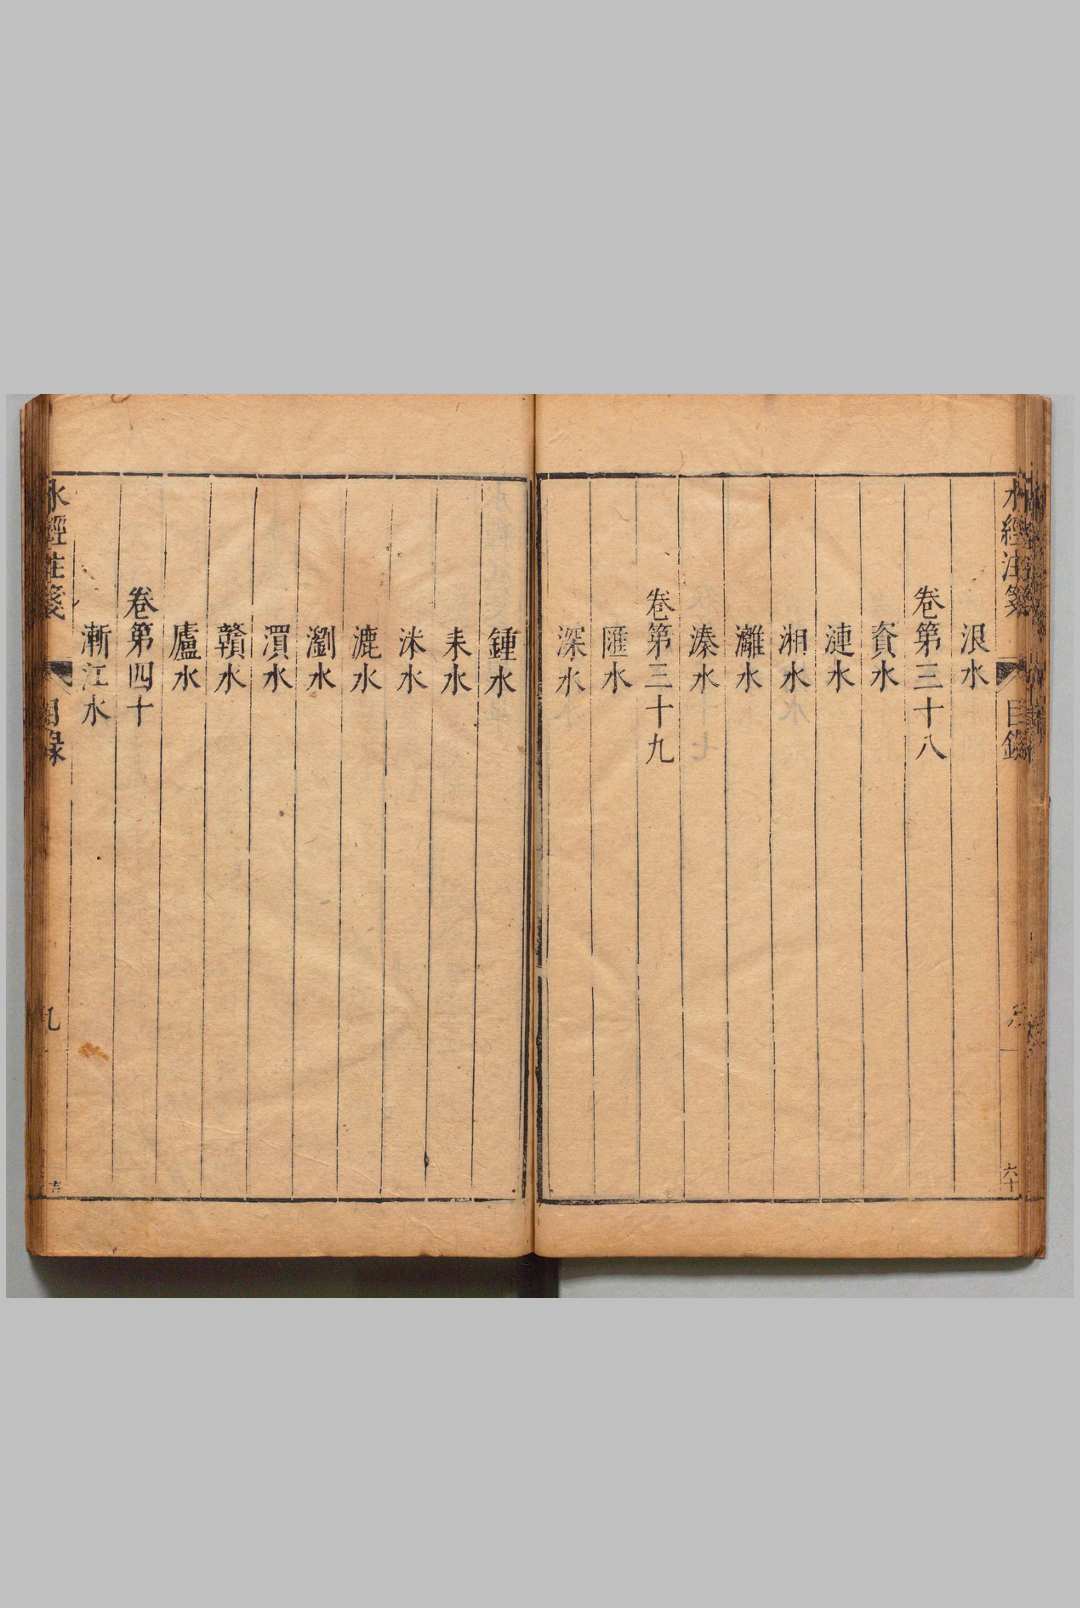 水經注箋
目錄
六十
浪水
卷第三十八
資水
漣水
湘水
灕水
溱水
卷第三十九
匯水
深水
鍾水
耒水
洣水
漉水
瀏水
㵋水
贛水
廬水
卷第四十
漸江水
水經注箋
目錄
九